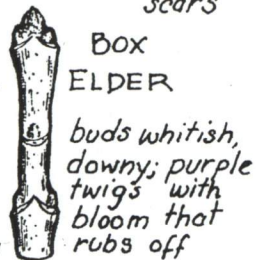 scars
BOX
ELDER
buds whitish,
downy; purple
twigs with
bloom that
rubs off